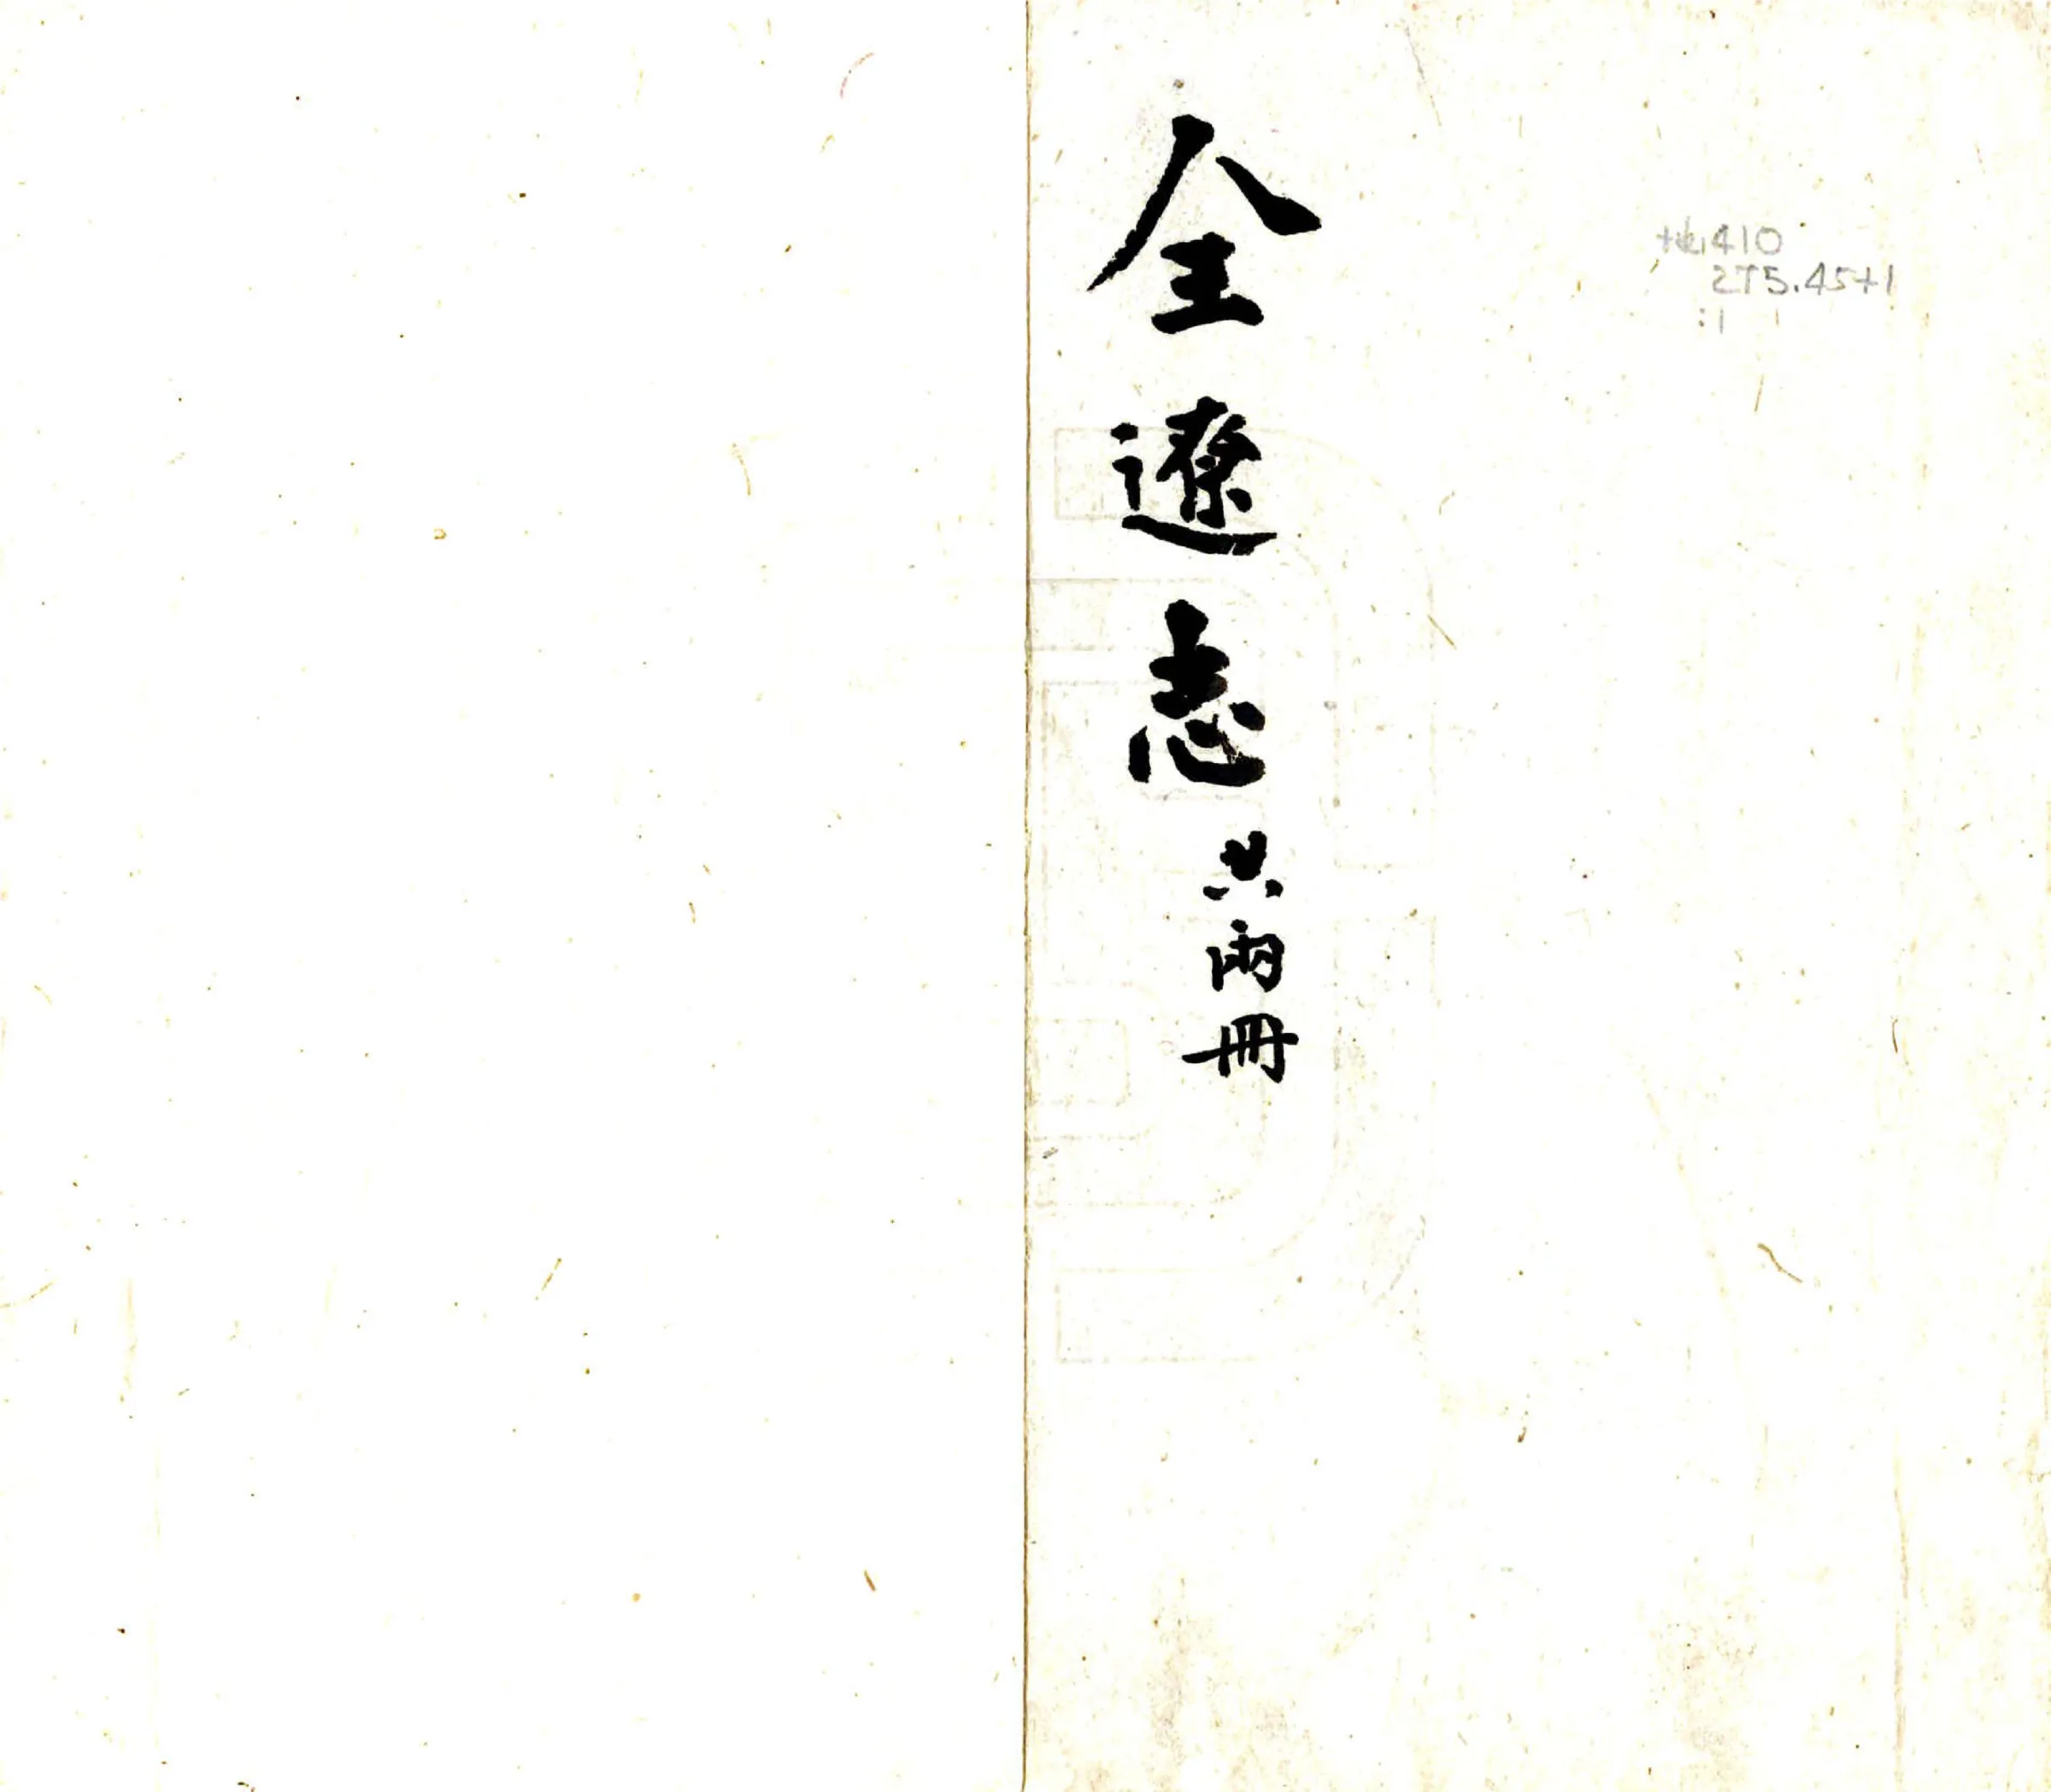 全遼志 共兩冊
地410
275.45+1
:1